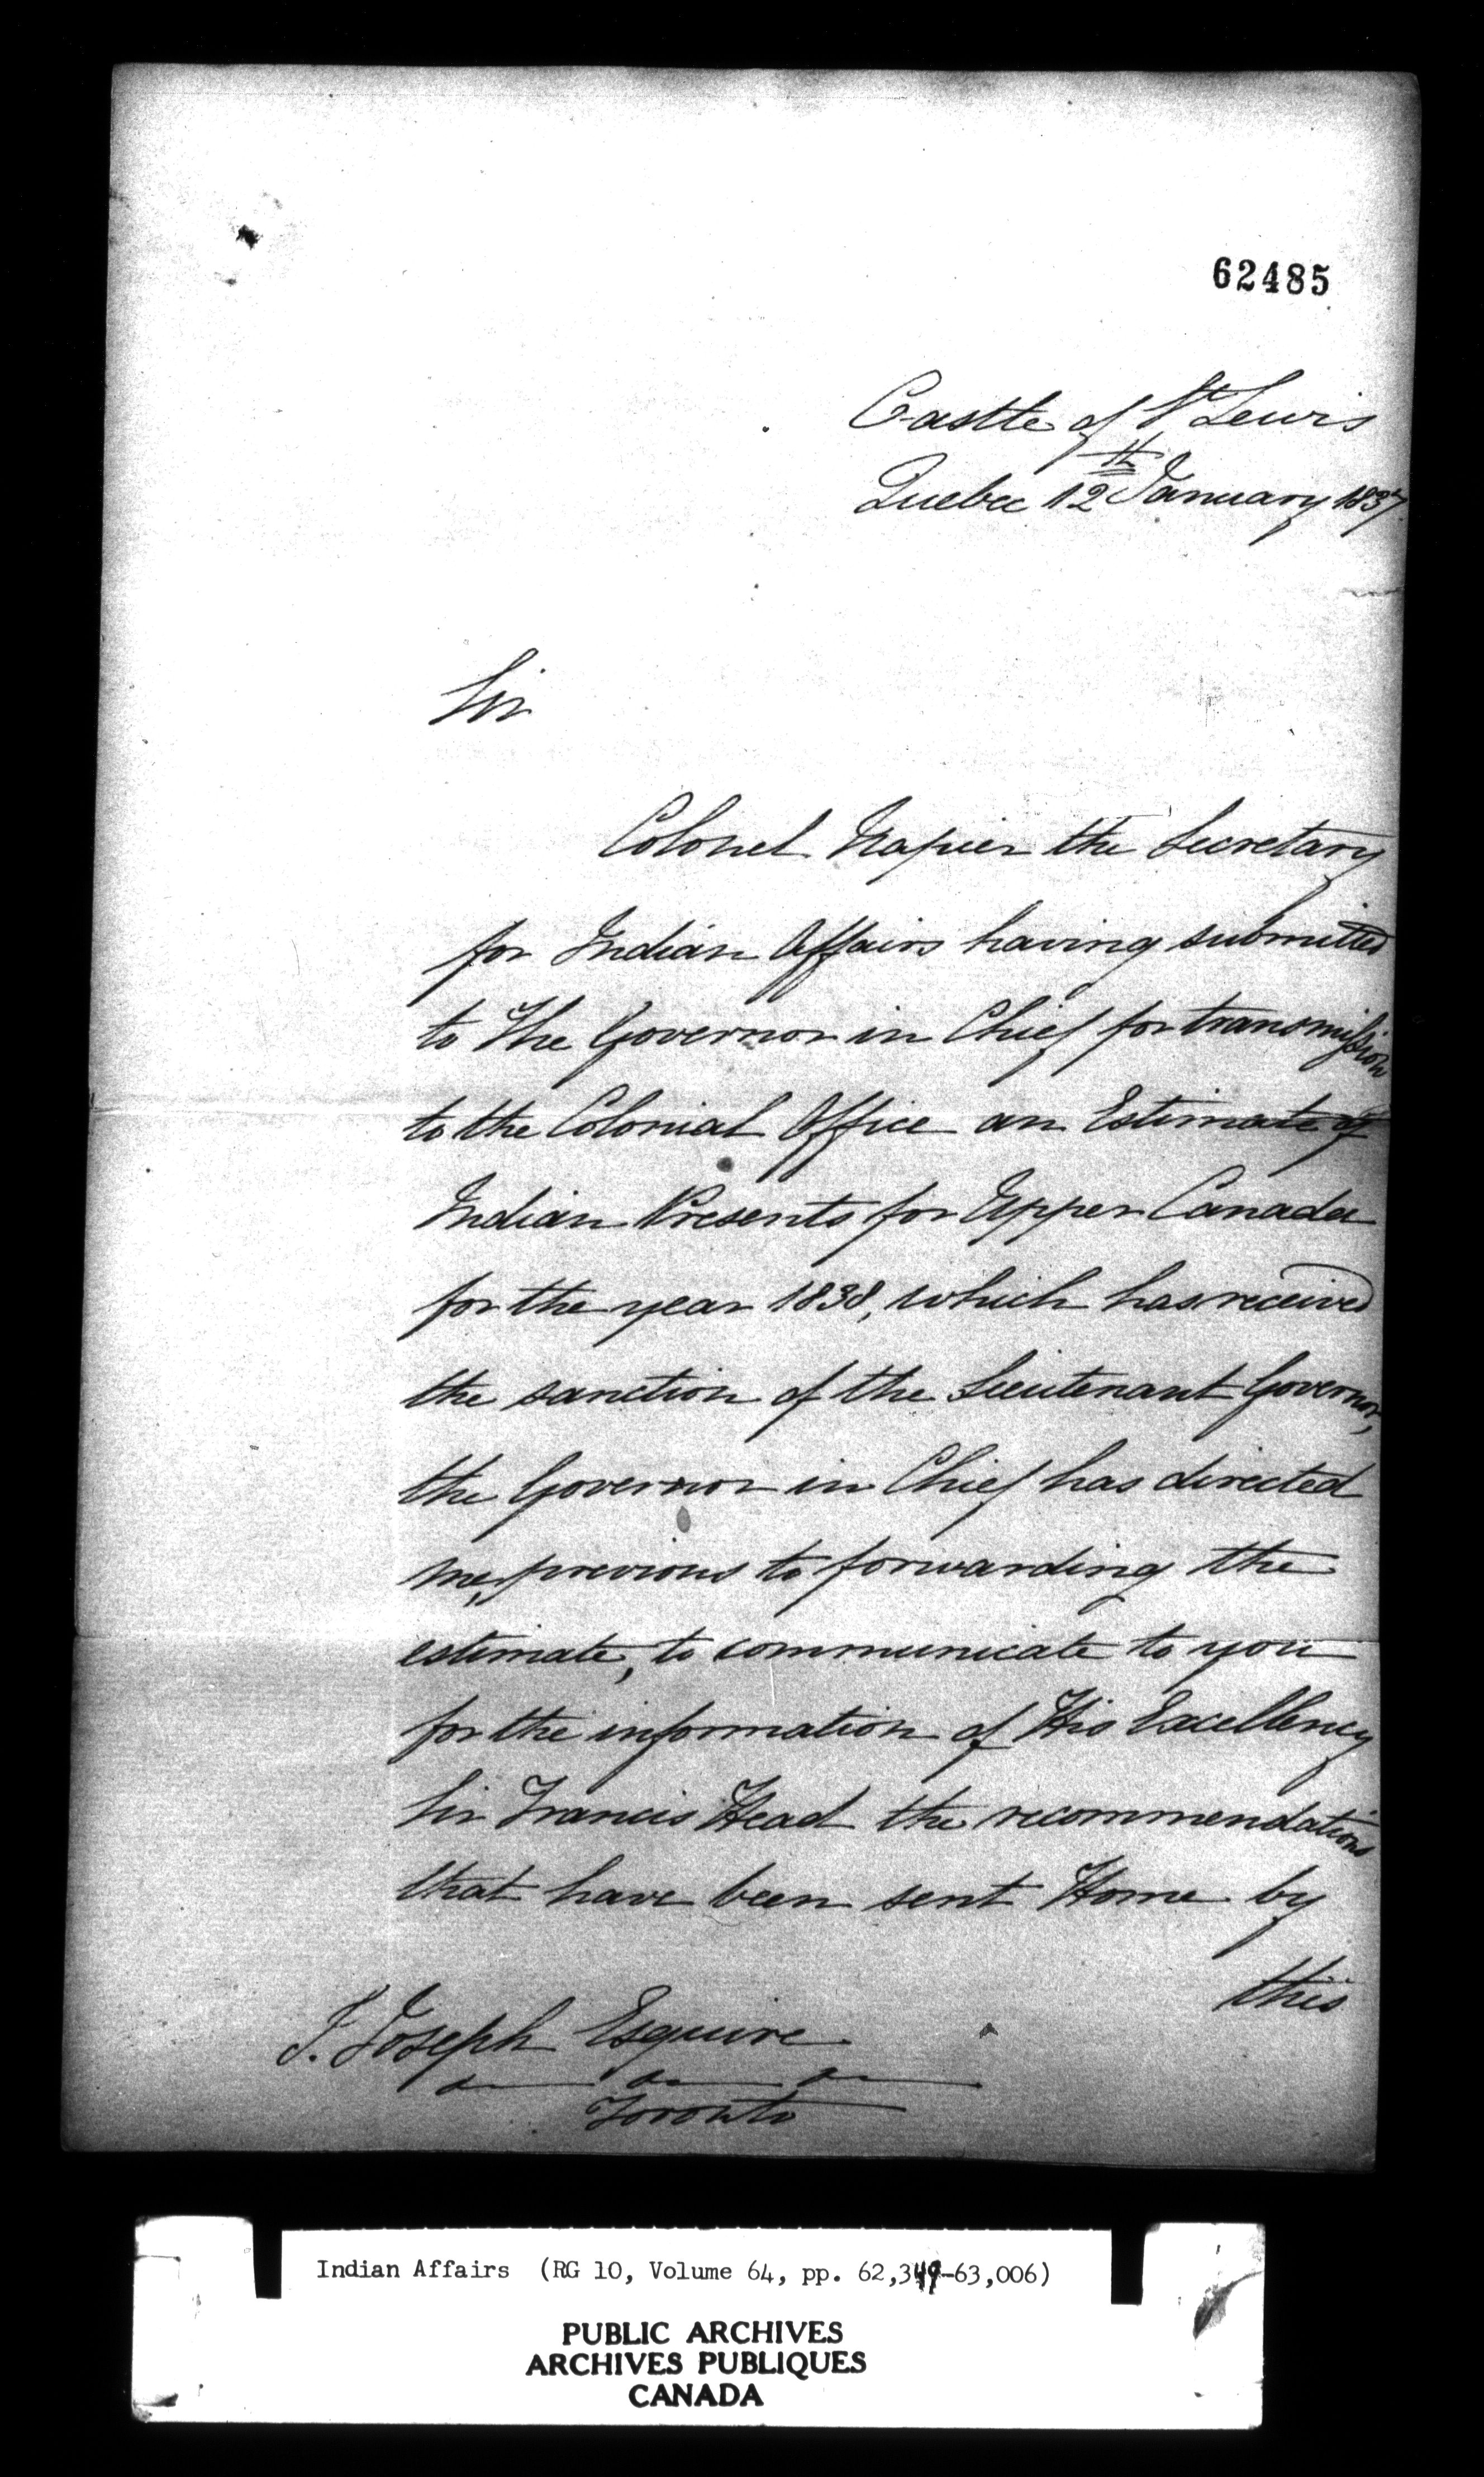 62485
Castle of St Lewis
Quebec 12th January 1837.
Sir
Colonel Napier the Secretary
for Indian Affairs having submitted
to The Governor in Chief for transmission
to the Colonial Office an Estimate of
Indian Presents for Upper Canada
for the year 1838, which has received
the sanction of the Lieutenant Governor,
the Governor in Chief has directed
me, previous to forwarding the
estimate, to communicate to you
for the information of His Excellency
Sir Francis Head the recommendations
that have been sent Home by
this
J. Joseph Esquire
Toronto
Indian Affairs (RG 10, Volume 64, pp. 62,349-63,006)
PUBLIC ARCHIVES
ARCHIVES PUBLIQUES
CANADA